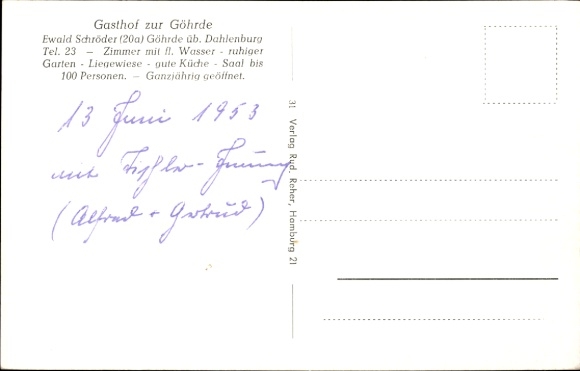 Gasthof zur Göhrde
Ewald Schröder (20a) Göhrde üb. Dahlenburg
Tel. 23 — Zimmer mit fl. Wasser - ruhiger
Garten - Liegewiese - gute Küche - Saal bis
100 Personen. — Ganzjährig geöffnet.
13 Juni 1953
mit
(Alfred + Gertrud)
31 Verlag Rud. Reher, Hamburg 21